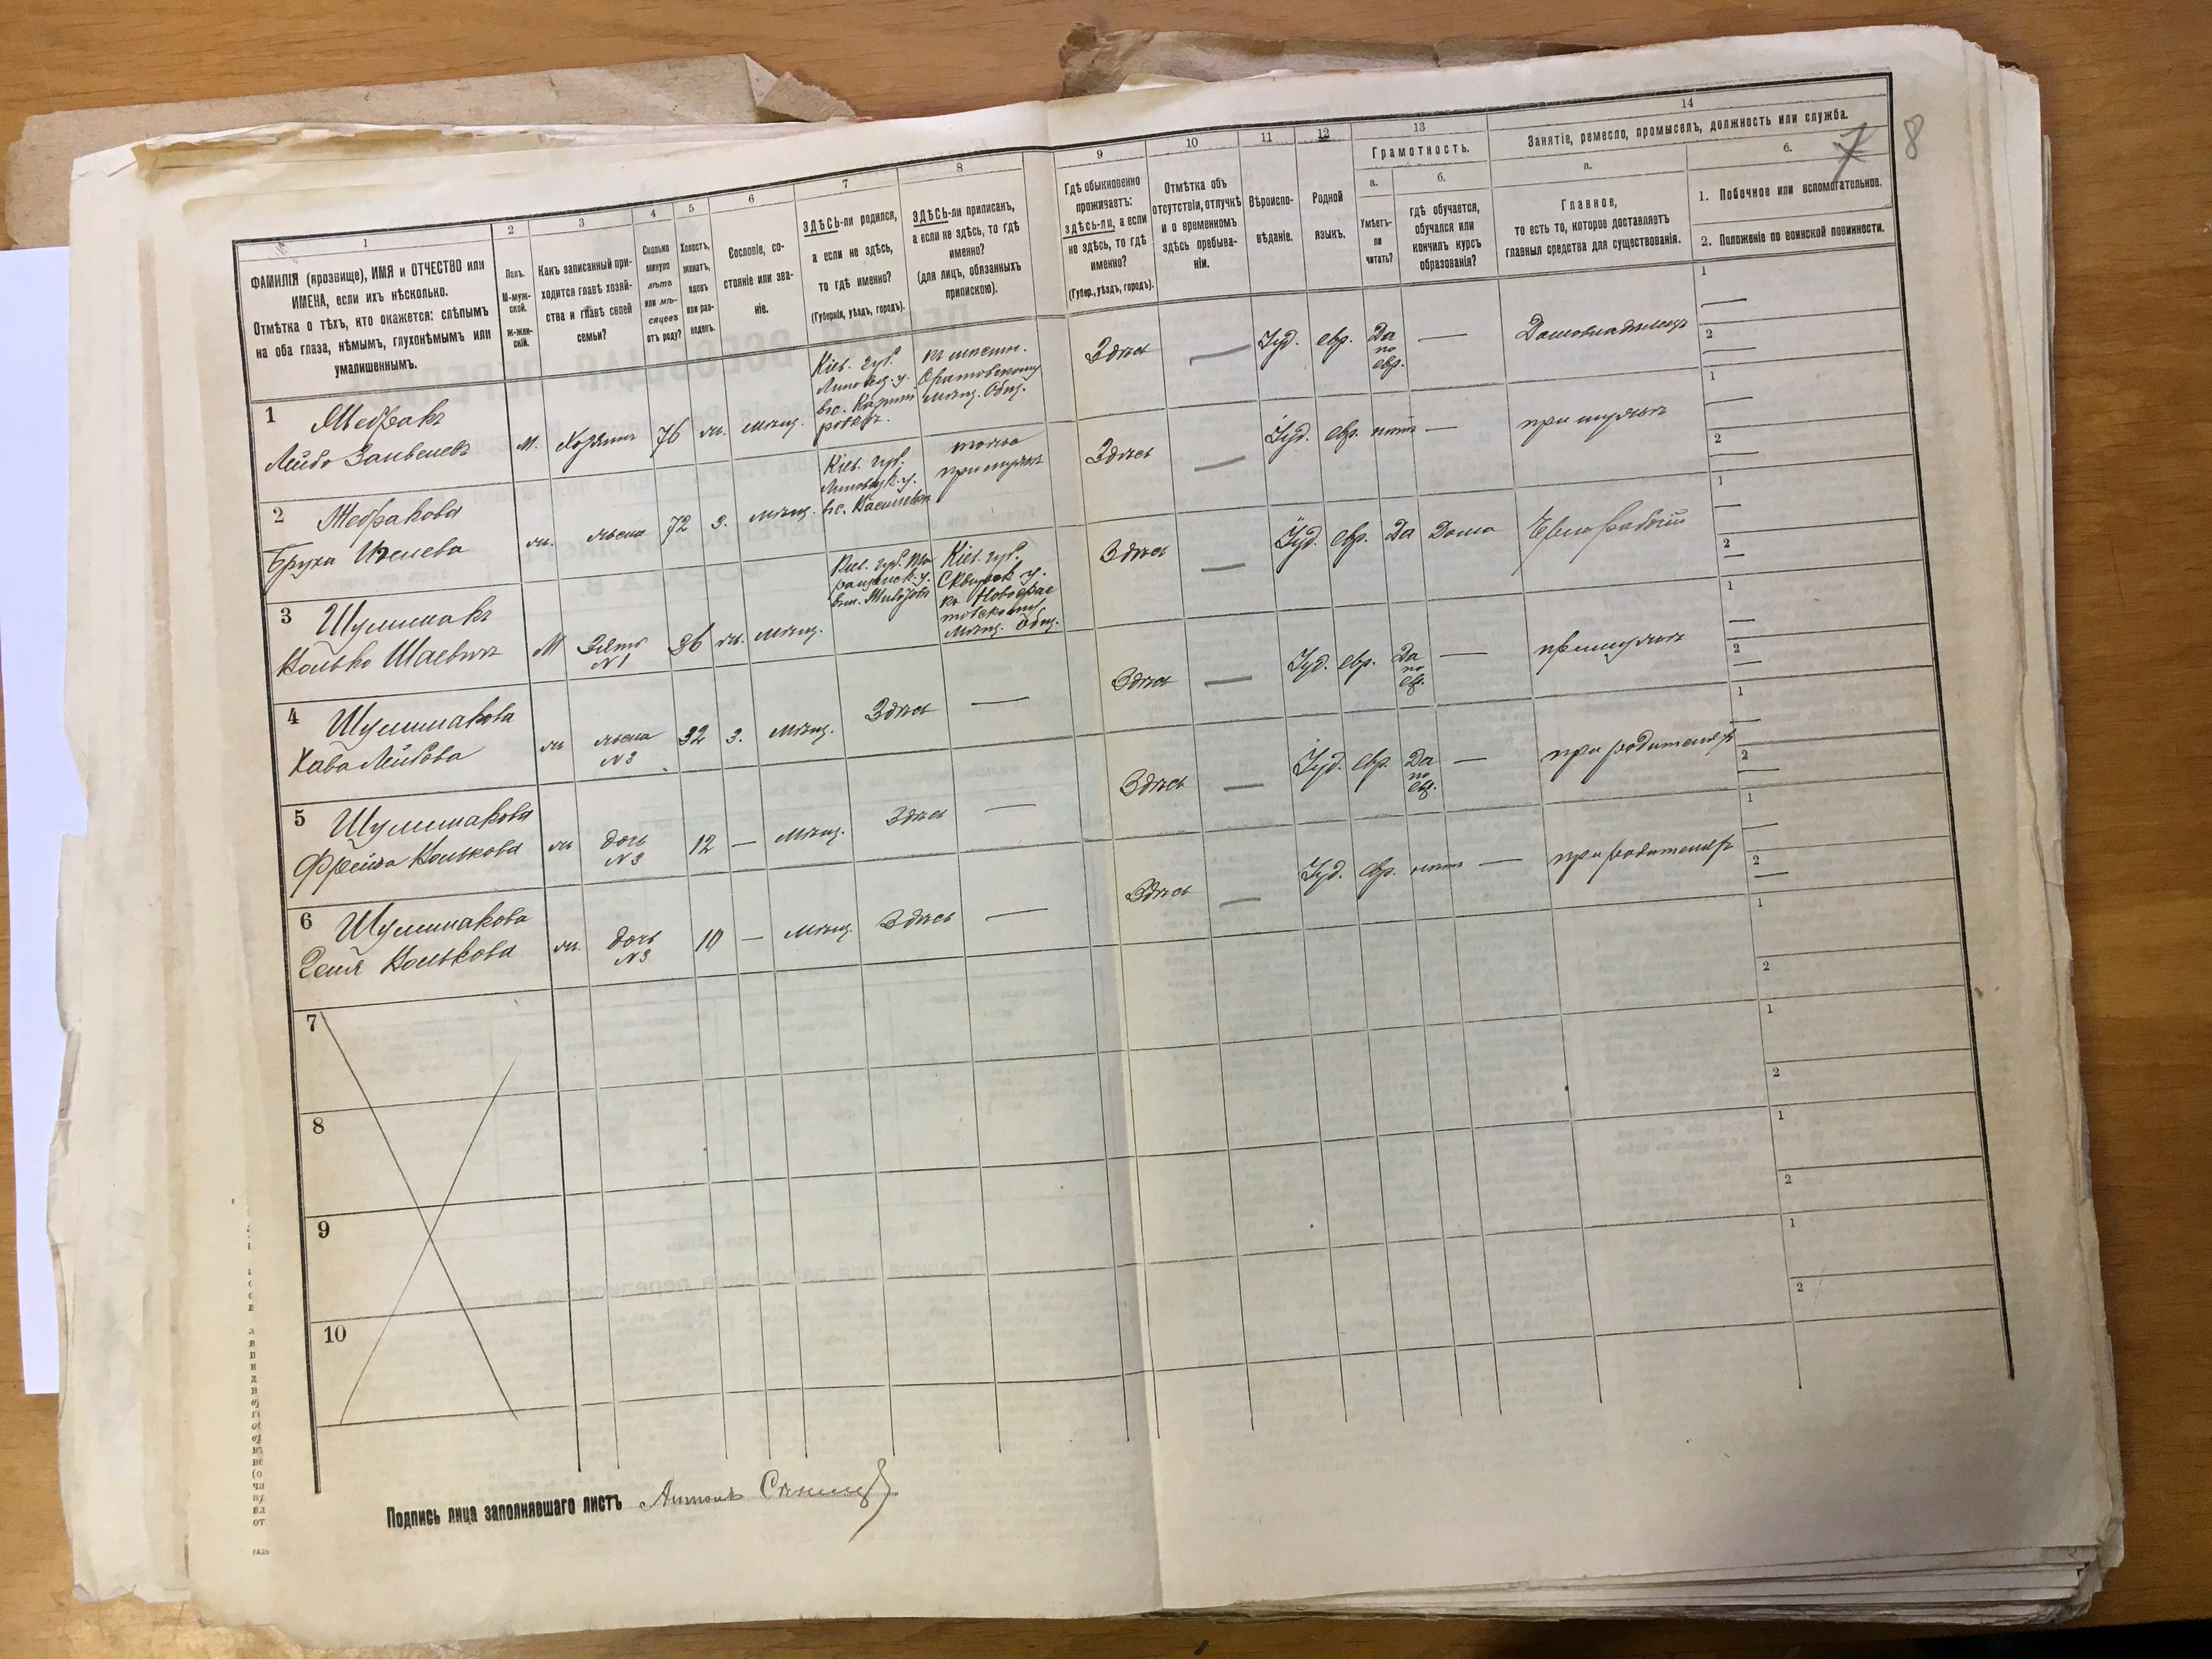 7 8
1
ФАМИЛІЯ (прозвище), ИМЯ и ОТЧЕСТВО или
ИМЕНА, если ихъ нѣсколько.
Отмѣтка о тѣхъ, кто окажется: слѣпымъ
на оба глаза, нѣмымъ, глухонѣмымъ или
умалишеннымъ.
2
Полъ.
М-муж-
ской.
Ж-жен-
скій.
3
Какъ записанный при-
ходится главѣ хозяй-
ства и главѣ своей
семьи?
4
Сколько
минуло
лѣтъ
или мѣ-
сяцевъ
отъ роду?
5
Холостъ,
женатъ,
вдовъ
или раз-
веденъ.
6
Сословіе, со-
стояніе или зва-
ніе.
7
ЗДѢСЬ-ли родился,
а если не здѣсь,
то гдѣ именно?
(Губернія, уѣздъ, городъ).
8
ЗДѢСЬ-ли приписанъ,
а если не здѣсь, то гдѣ
именно?
(для лицъ, обязанныхъ
припискою).
9
Гдѣ обыкновенно
проживаетъ:
здѣсь-ли, а если
не здѣсь, то гдѣ
именно?
(Губер., уѣздъ, городъ).
10
Отмѣтка объ
отсутствіи, отлучкѣ
и о временномъ
здѣсь пребыва-
ніи.
11
Вѣроиспо-
вѣданіе.
12
Родной
языкъ.
13
Грамотность.
а.
Умѣетъ-
ли
читать?
б.
гдѣ обучается,
обучался или
кончилъ курсъ
образованія?
14
Занятіе, ремесло, промыселъ, должность или служба.
а.
Главное,
то есть то, которое доставляетъ
главныя средства для существованія.
б.
1. Побочное или вспомогательное.
2. Положеніе по воинской повинности.
1 Жебракъ
Лейбо Занвелевъ
м. Хозяинъ 76 ж. мѣщ.
Кіев. губ.
Липовец. у.
Оратовскому
мѣщ. Общ.
Здѣсь — Іуд. евр. Да
по
евр. — Домовладѣлецъ
1 —
2 —
2 Жебракова
Бруха
ж. жена 72 з. мѣщ.
Кіев. губ.
Липовецк. у.
при мужѣ
Здѣсь — Іуд. евр. нѣтъ — при мужѣ
1 —
2 —
3 Шулимакъ
Шаевичъ
М Зять
№1 36 ж. мѣщ.
Кіев. губ.
Кіев. губ.
Сквирск у.
мѣщ. Общ.
Здѣсь — Іуд. евр. Да Дома Чернорабочій
1 —
2 —
4 Шулимакова
Хава Лейбова
ж жена
№3 32 з. мѣщ. Здѣсь —
Здѣсь — Іуд. евр. Да
по
евр. — при мужѣ
1 —
2 —
5 Шулимакова
Фрейда
ж дочь
№3 12 — мѣщ. Здѣсь —
Здѣсь — Іуд. евр. Да
по
евр. — при родителяхъ
1 —
2 —
6 Шулимакова
ж. дочь
№3 10 — мѣщ. Здѣсь —
Здѣсь — Іуд. евр. нѣтъ — при родителяхъ
1 —
2 —
7
1
2
8
1
2
9
1
2
10
1
2
Подпись лица заполнявшаго листъ Антонъ